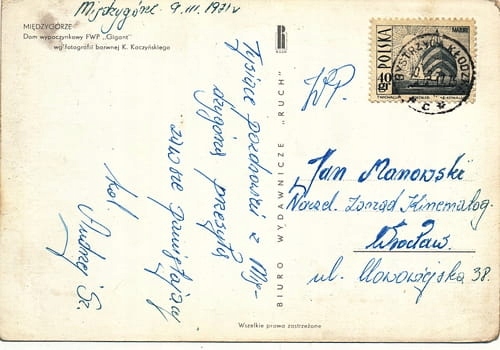 Międzygórze 9.III.1971r
MIĘDZYGÓRZE
Dom wypoczynkowy FWP „Gigant"
wg fotografii barwnej K. Kaczyńskiego
Tysiące pozdrowień z Mię-
dzygórza przesyła
zawsze pamiętający
kol. Andrzej Sz.
BIURO WYDAWNICZE „RUCH"
Wszelkie prawa zastrzeżone
POLSKA
40 gr
BYSTRZYCA KŁODZ
WP.
Jan Manowski
Nacz. Zarząd Kinematog.
Wrocław.
ul. Nowowiejska 38.